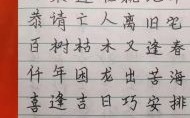 恭请亡人离旧宅
百树枯木又逢春
仟年困龙出苦海
喜逢吉日巧安排